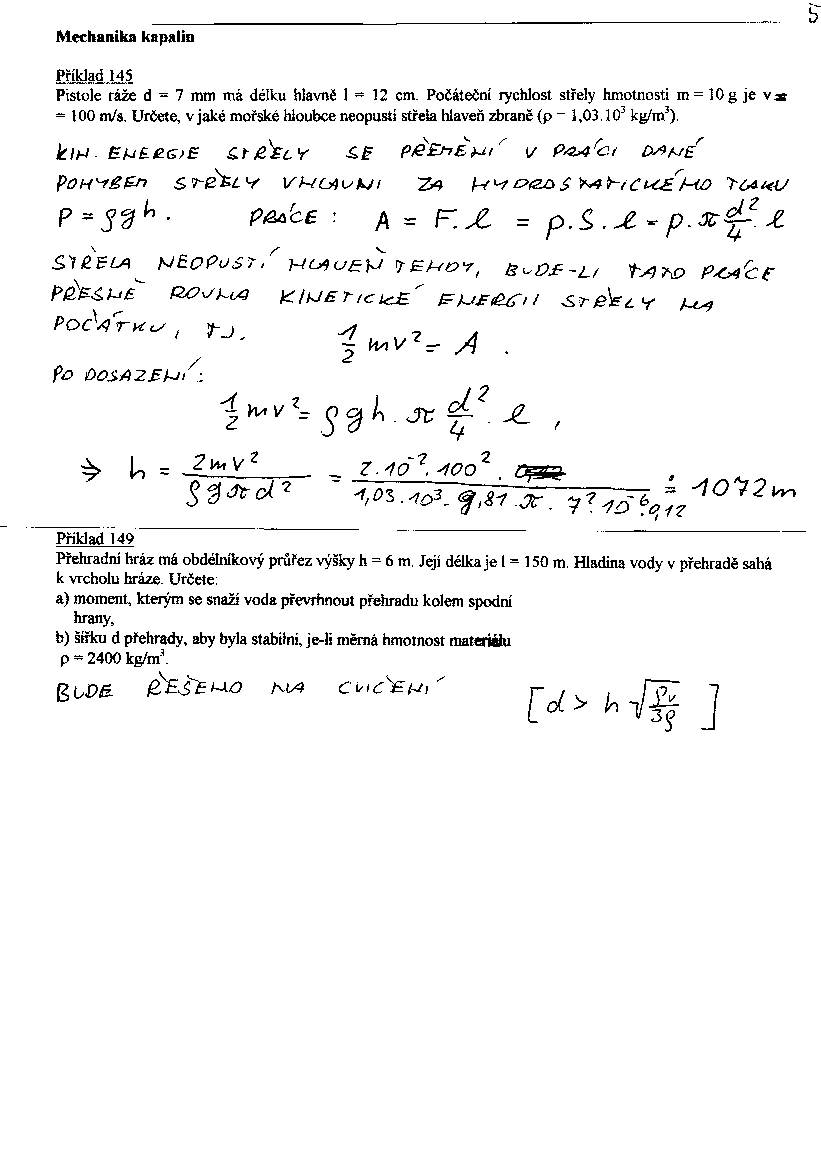 5
Mechanika kapalin
Příklad 145
Pistole ráže d = 7 mm má délku hlavně l = 12 cm. Počáteční rychlost střely hmotnosti m = 10 g je v
= 100 m/s. Určete, v jaké mořské hloubce neopustí střela hlaveň zbraně (ρ = 1,03.10³ kg/m³).
KIN. ENERGIE STŘELY SE PŘEMĚNÍ V PRÁCI DANÉ
POHYBEM STŘELY V HLAVNI ZA HYDROSTATICKÉHO TLAKU
P = ρgh. PRÁCE : A = F.l = p.S.l = p.π d²/4 . l
STŘELA NEOPUSTÍ HLAVEŇ TEHDY, BUDE-LI TATO PRÁCE
PŘESNĚ ROVNA KINETICKÉ ENERGII STŘELY NA
POČÁTKU, TJ. 1/2 mv² = A .
PO DOSAZENÍ:
1/2 mv² = ρgh.π d²/4 . l ,
⇒ h = 2mv² / ρgπd² = 2.10⁻².100² . / 1,03.10³.9,81.π.7².10⁻⁶.0,12 ≐ 1072 m
Příklad 149
Přehradní hráz má obdélníkový průřez výšky h = 6 m. Její délka je l = 150 m. Hladina vody v přehradě sahá
k vrcholu hráze. Určete:
a) moment, kterým se snaží voda převrhnout přehradu kolem spodní
hrany,
b) šířku d přehrady, aby byla stabilní, je-li měrná hmotnost materiálu
ρ = 2400 kg/m³.
BUDE ŘEŠENO NA CVIČENÍ [d > h √(ρv/3ρ) ]